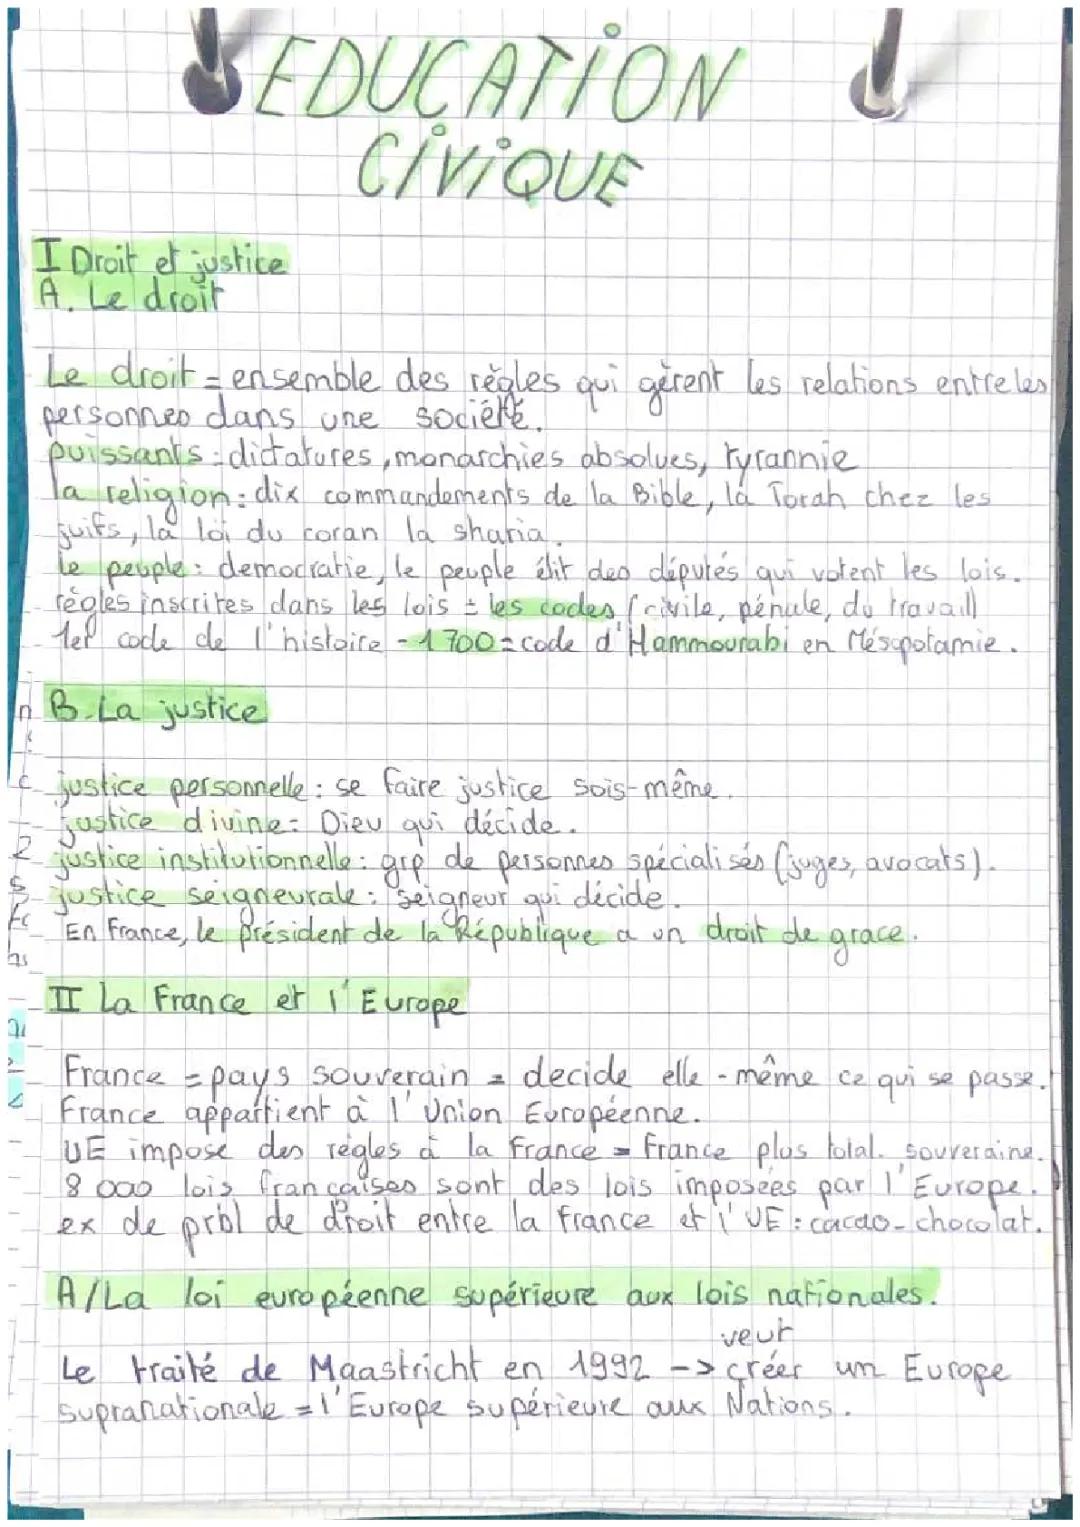 EDUCATION
CIVIQUE
I Droit et justice
A. Le droit
Le droit = ensemble des règles qui gèrent les relations entre les
personnes dans une société.
puissants : dictatures, monarchies absolues, tyrannie
la religion : dix commandements de la Bible, la Torah chez les
juifs, la loi du coran la sharia.
le peuple : democratie, le peuple élit des députés qui votent les lois.
règles inscrites dans les lois = les codes (civile, pénale, du travail)
1er code de l'histoire -1700 = code d'Hammourabi en Mésopotamie.
B. La justice
justice personnelle : se faire justice sois-même.
justice divine : Dieu qui décide.
justice institutionnelle : grp de personnes spécialisés (juges, avocats).
justice seigneurale : seigneur qui décide.
En France, le président de la République a un droit de grace.
II La France et l'Europe
France = pays souverain = decide elle-même ce qui se passe.
France appartient à l'Union Européenne.
UE impose des règles à la France = France plus total. souveraine.
8 000 lois françaises sont des lois imposées par l'Europe.
ex de prbl de droit entre la France et l'UE : cacao-chocolat.
A/La loi européenne supérieure aux lois nationales.
veut
Le traité de Maastricht en 1992 -> créer un Europe
supranationale = l'Europe supérieure aux Nations.